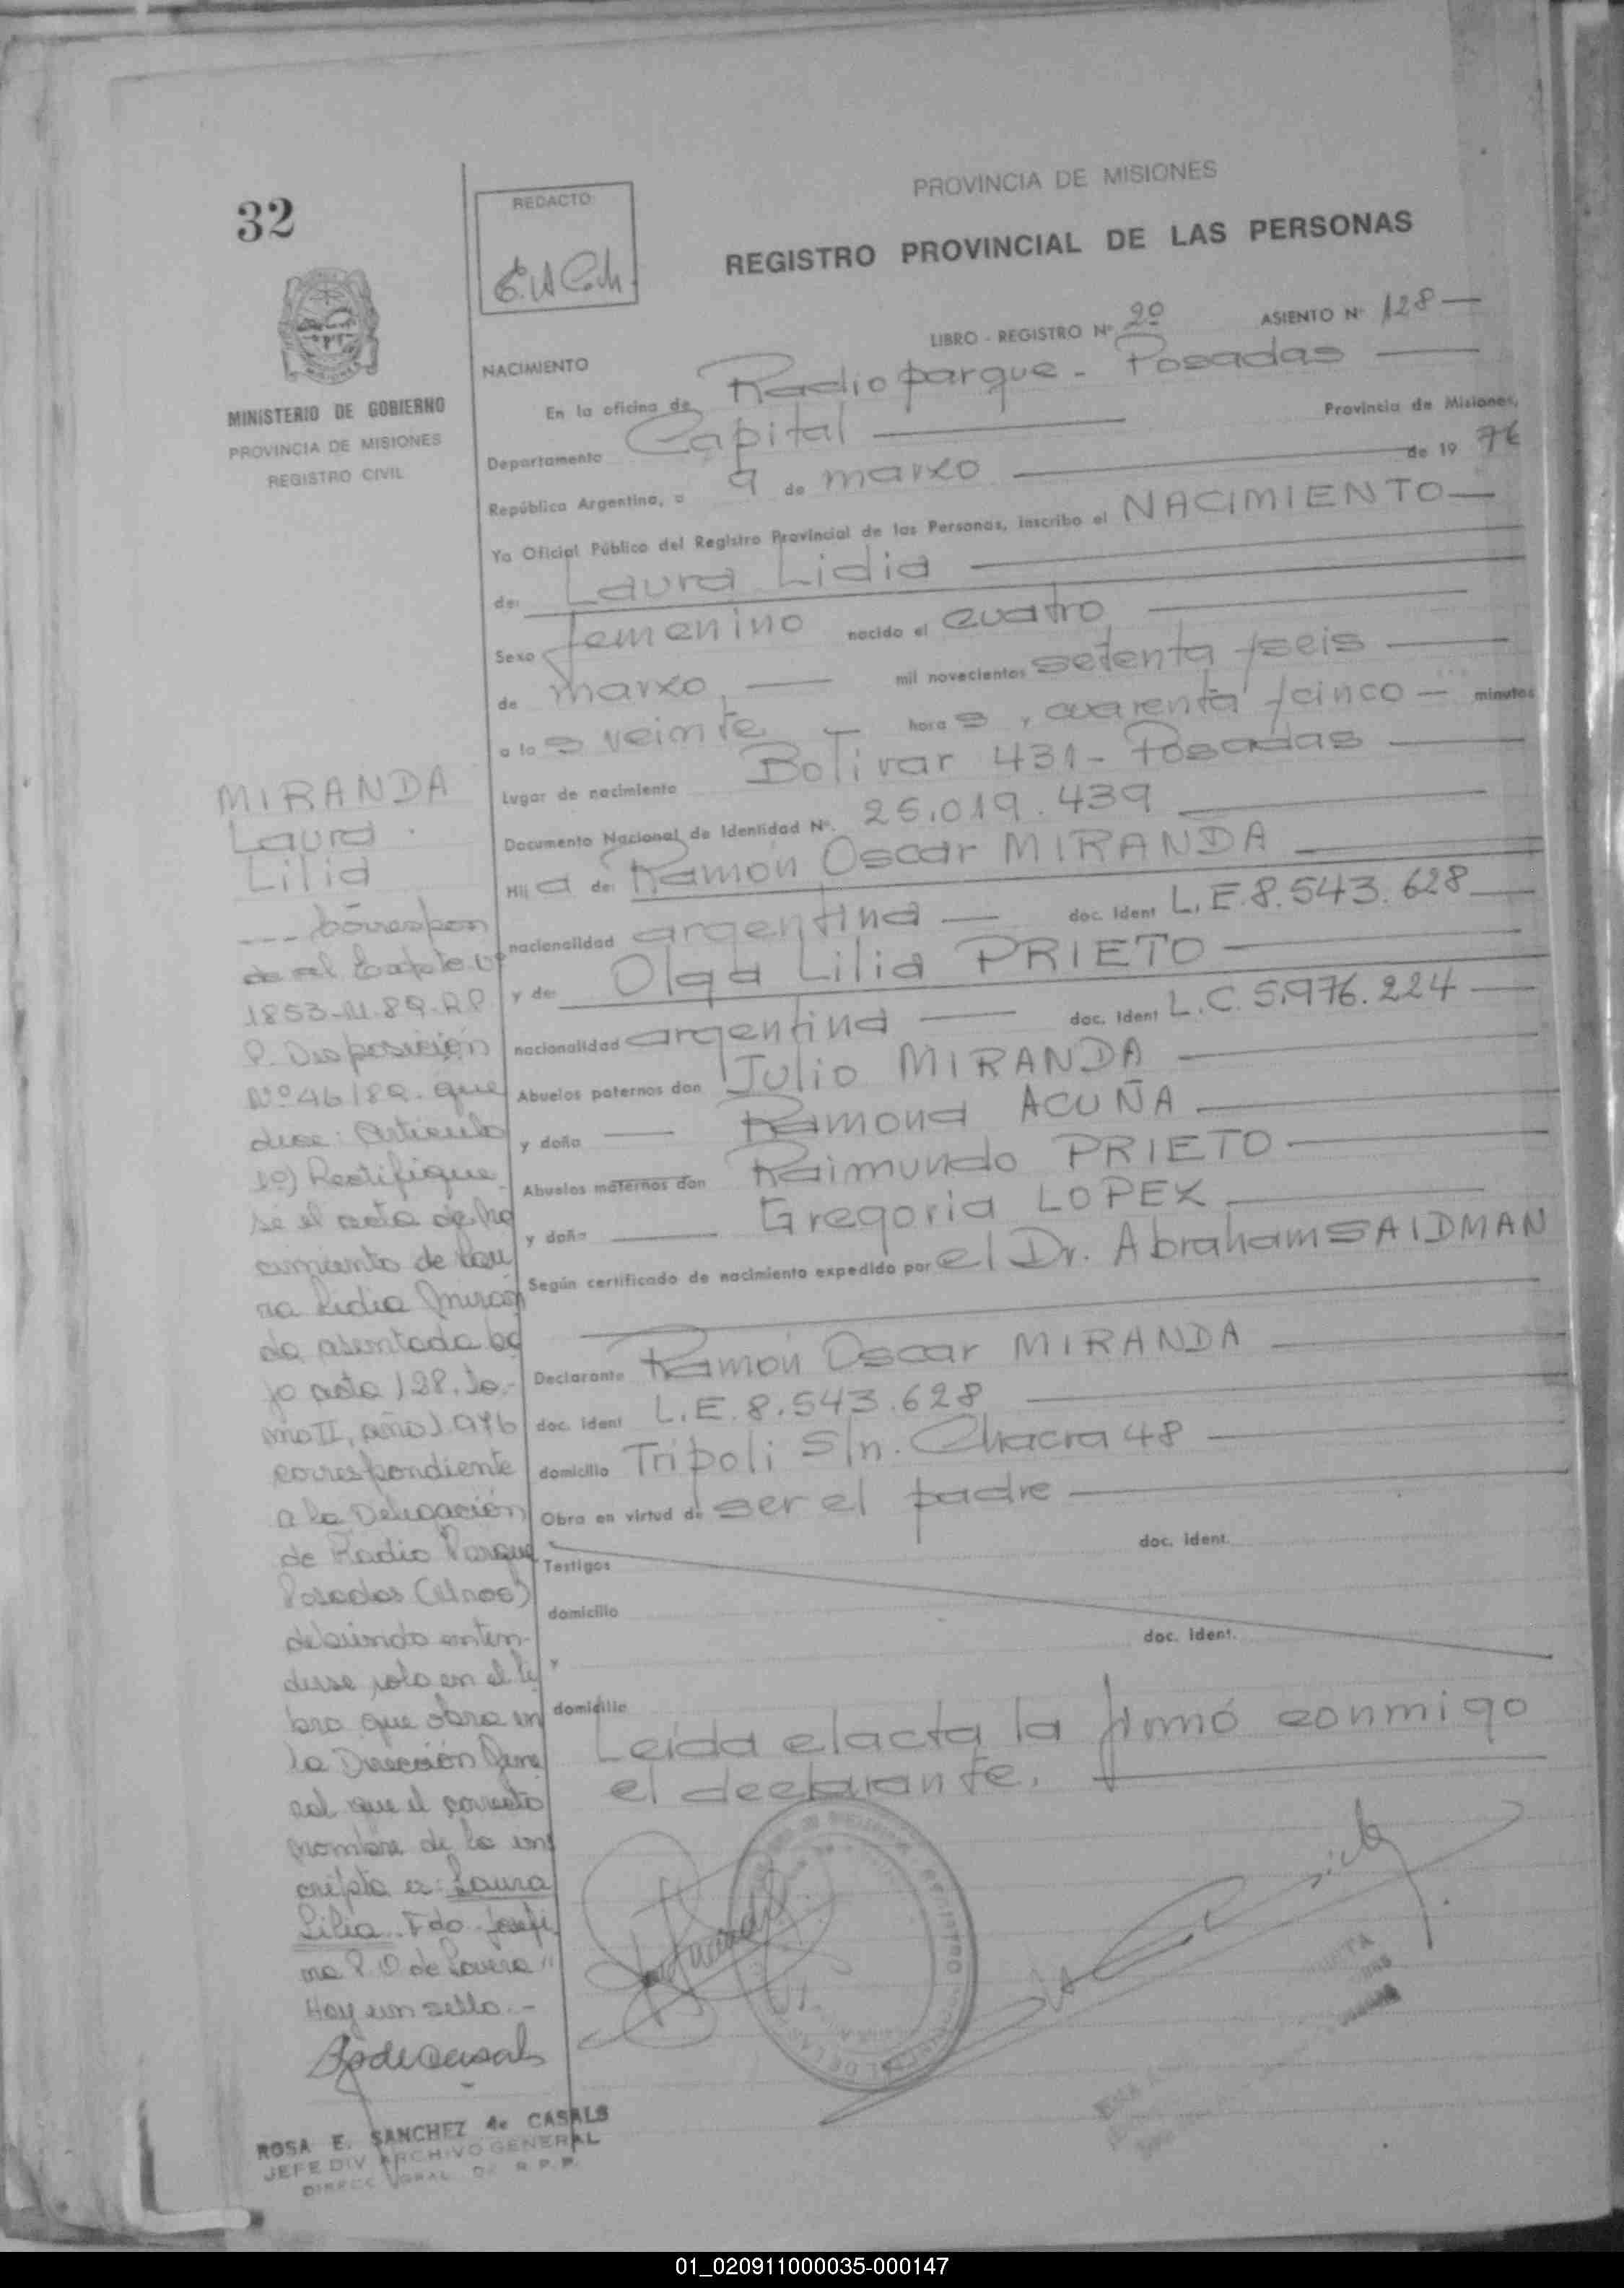 32
REDACTO:
PROVINCIA DE MISIONES
REGISTRO PROVINCIAL DE LAS PERSONAS
MINISTERIO DE GOBIERNO
PROVINCIA DE MISIONES
REGISTRO CIVIL
LIBRO - REGISTRO Nº 2º ASIENTO Nº 128
NACIMIENTO
En la oficina de Radioparque - Posadas
Departamento Capital Provincia de Misiones,
República Argentina, a 9 de marzo de 1976
Yo Oficial Público del Registro Provincial de las Personas, inscribo el NACIMIENTO
de: Laura Lidia
Sexo femenino nacido el cuatro
de marzo, mil novecientos setenta y seis
a las veinte horas, y cuarenta y cinco minutos
Lugar de nacimiento Bolivar 431 - Posadas
Documento Nacional de Identidad Nº. 25.019.439
Hija de: Ramón Oscar MIRANDA
nacionalidad argentina doc. ident L.E.8.543.628
y de Olga Lilia PRIETO
nacionalidad argentina doc. ident L.C.5.976.224
Abuelos paternos don Julio MIRANDA
y doña Ramona ACUÑA
Abuelos maternos don Raimundo PRIETO
y doña Gregoria LOPEZ
Según certificado de nacimiento expedido por el Dr. Abraham SAIDMAN
Declarante Ramón Oscar MIRANDA
doc. ident L.E.8.543.628
domicilio Tripoli S/n. Chacra 48
Obra en virtud de ser el padre
doc. ident.
Testigos
domicilio
doc. ident.
y
domicilio
Leida el acta la firmó conmigo
el declarante.
MIRANDA
Laura
Lilia
Correspon
de al Expte. Nº
1853-M-89-R.P
P. Disposición
Nº 46/89. que
dice: Articulo
1º) Rectifique
se el acta de na
cimiento de Lau
ra Lidia Miran
da asentada ba
jo acta 128. To-
mo II, año 1.976
correspondiente
a la Delegación
de Radio Parque
Posadas
debiendo enten-
derse solo en el li
bro que obra en
la Dirección Gene
ral que el correcto
nombre de la ins
cripta es: Laura
Lilia. Fdo. Josefi
na P. O de Lovera"
Hay un sello.-
ROSA E. SANCHEZ de CASALS
JEFE DIV ARCHIVO GENERAL
DIRECC. GRAL. DE R.P.P.
01_020911000035-000147